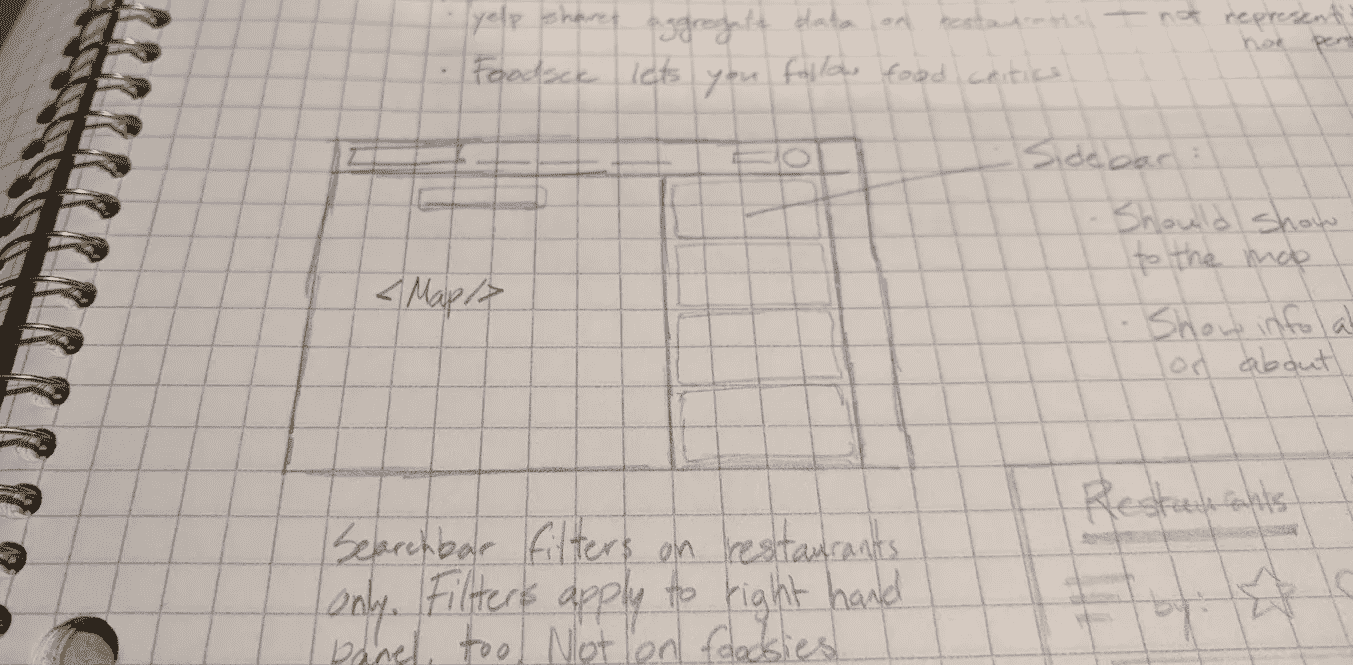 · yelp shares aggregate data on restaurants → not
not
· Foodsee lets you follow food critics
Sidebar:
· Should show
to the map
· Show info
or about
<Map/>
Searchbar filters on restaurants
only. Filters apply to right hand
panel, too. Not on foodsies
Restaurants
by: